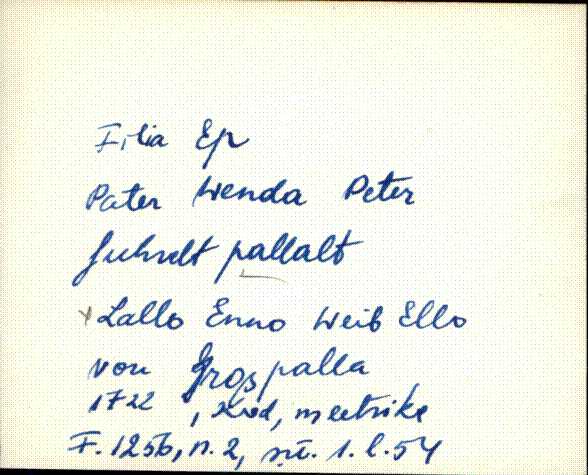 Filia Ep
Pater Wenda Peter
Juhrelt pallalt
Lallo Enno Weib Ello
von Grospalla
1722, Kod, meetrika
F. 1256, n. 2, sü. 1. l. 54